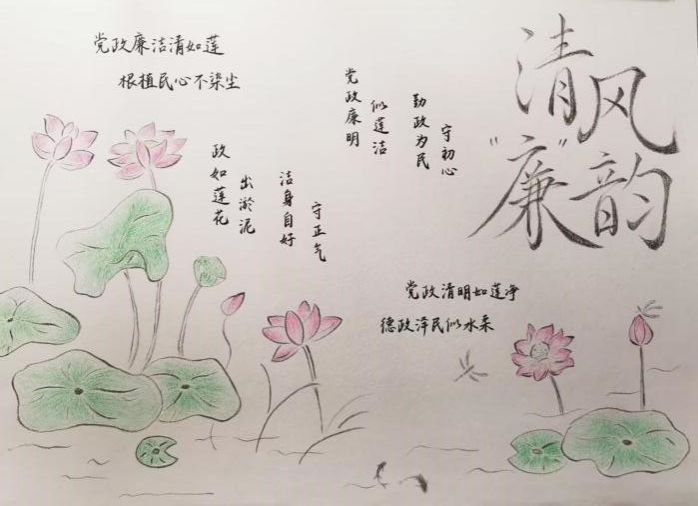 清风
“廉”韵
党政廉洁清如莲
根植民心不染尘
党政廉明
似莲洁
勤政为民
守初心
政如莲花
出淤泥
洁身自好
守正气
党政清明如莲净
德政泽民似水柔